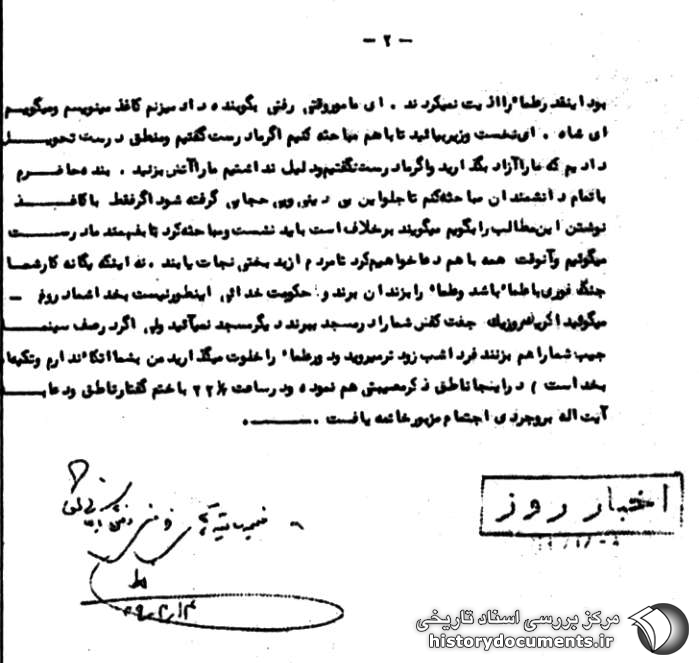 - ۲ -
بود اینقدر علماء را اذیت نمیکردند . ای مامور وقتی رفتی بگو بنده داد میزنم کاغذ مینویسم ومیگویم
ای شاه . ای نخست وزیر بیائید تا باهم مباحثه کنیم اگر ما درست گفتیم ومنطق درست تحویل
دادیم که ما را آزاد بگذارید واگر ما درست نگفتیم ودلیل نداشتیم ما را آتش بزنید . بنده حاضرم
باتمام دانشمندان مباحثه کنم تا جلو این بی دینی وبی حجابی گرفته شود اگر فقط با کاغذ
نوشتن این مطالب را بگویم میگویند برخلاف است باید نشست ومباحثه کرد تا بفهمند ما درست
میگوئیم وآنوقت همه باهم دعا خواهیم کرد تا مردم از بدبختی نجات یابند . نه اینکه یگانه کار شما
جنگ فوری با علماء باشد وعلماء را بزندان برند و حکومت خدائی اینطور نیست بخدا شما دروغ -
میگوئید اگر یک جفت کفش شما را در مسجد ببرند دیگر مسجد نمیآئید ولی اگر در صف سینما
جیب شما را هم بزنند فردا شب زودتر میروید ودور علماء را خلوت میگذارید من بشما اتکاء ندارم وتکیه‌ام
بخدا است ) در اینجا ناطق ذکر مصیبتی هم نموده ودر ساعت ۲۲/۳۰ با ختم گفتار ناطق ودعا به
آیت اله بروجردی اجتماع مزبور خاتمه یافت .
اخبار روز
مرکز بررسی اسناد تاریخی
historydocuments.ir